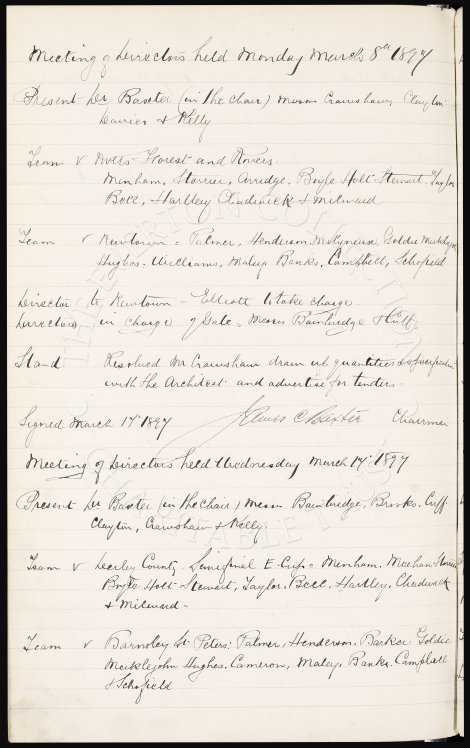 Meeting of Directors held Monday March 8th 1897
Present Dr Baxter (in the chair) Messrs Crawshaw, Clayton
Davies & Kelly
Team v Notts Forest and Rovers.
Menham, Storrier, Arridge, Boyle Holt Stewart Taylor
Bell, Hartley Chadwick & Milward
Team v Newtown = Palmer, Henderson, Molyneux, Goldie Meiklejohn
Hughes, Williams, Maley Banks, Campbell, Schofield
Director to Newtown - Elliott to take charge.
Directors in charge of Gate - Messrs Bainbridge & Cuff.
Stand Resolved Mr Crawshaw draw up quantities & specification
with the Architect and advertise for tenders.
Signed March 17th 1897 James C Baxter Chairman
Meeting of Directors held Wednesday March 17th 1897
Present Dr Baxter (in the Chair) Messrs Bainbridge, Brooks, Cuff
Clayton, Crawshaw & Kelly.
Team v Derby County. Semifinal E. Cup = Menham, Meehan Storrier
Boyle Holt Stewart, Taylor, Bell, Hartley, Chadwick
& Milward -
Team v Barnsley St Peters: Palmer, Henderson, Barker Goldie
Meiklejohn Hughes, Cameron, Maley, Banks, Campbell
& Schofield